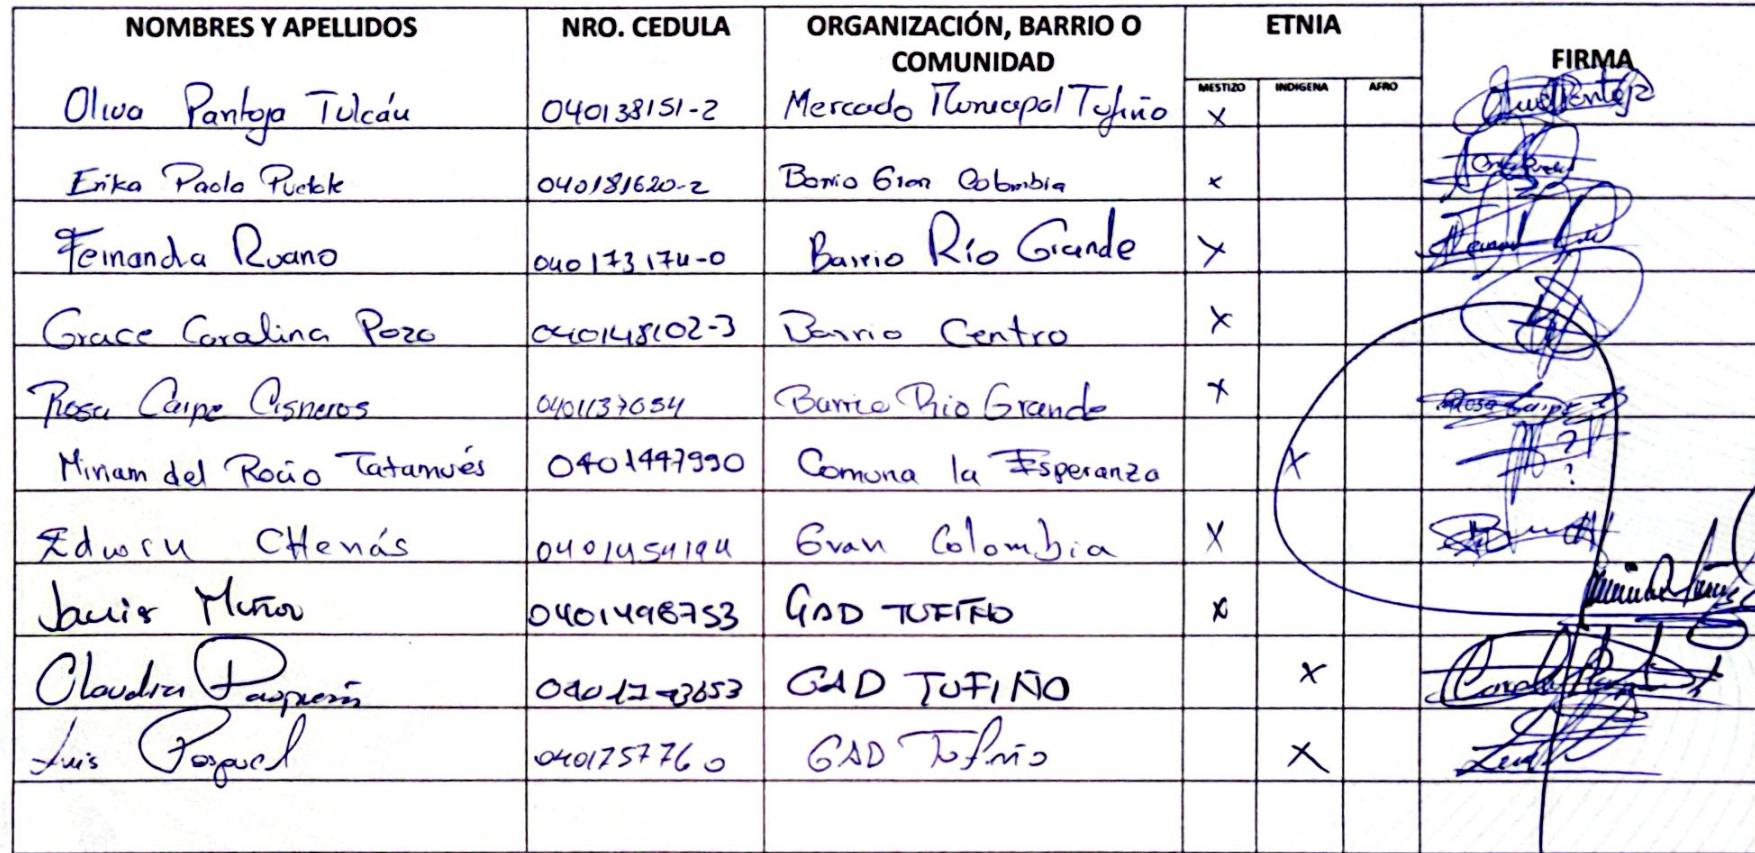 NOMBRES Y APELLIDOS NRO. CEDULA ORGANIZACIÓN, BARRIO O COMUNIDAD ETNIA FIRMA
MESTIZO INDIGENA AFRO
Oliva Pantoja Tulcán 040138151-2 Mercado Municipal Tufiño X
Erika Paola Puetate 040181620-2 Barrio Gran Colombia X
Fernanda Ruano 040173174-0 Barrio Río Grande X
Grace Carolina Pozo 040148102-3 Barrio Centro X
Rosa Carpe Cisneros 0401137654 Barrio Rio Grande X Rosa
Miriam del Rocio Tatamués 0401447990 Comuna la Esperanza X
CHenás 0401454194 Gran Colombia X
Muñoz 0401498753 GAD TUFIÑO X
Claudia GAD TUFIÑO X
Luis 040175776 0 GAD Tufiño X